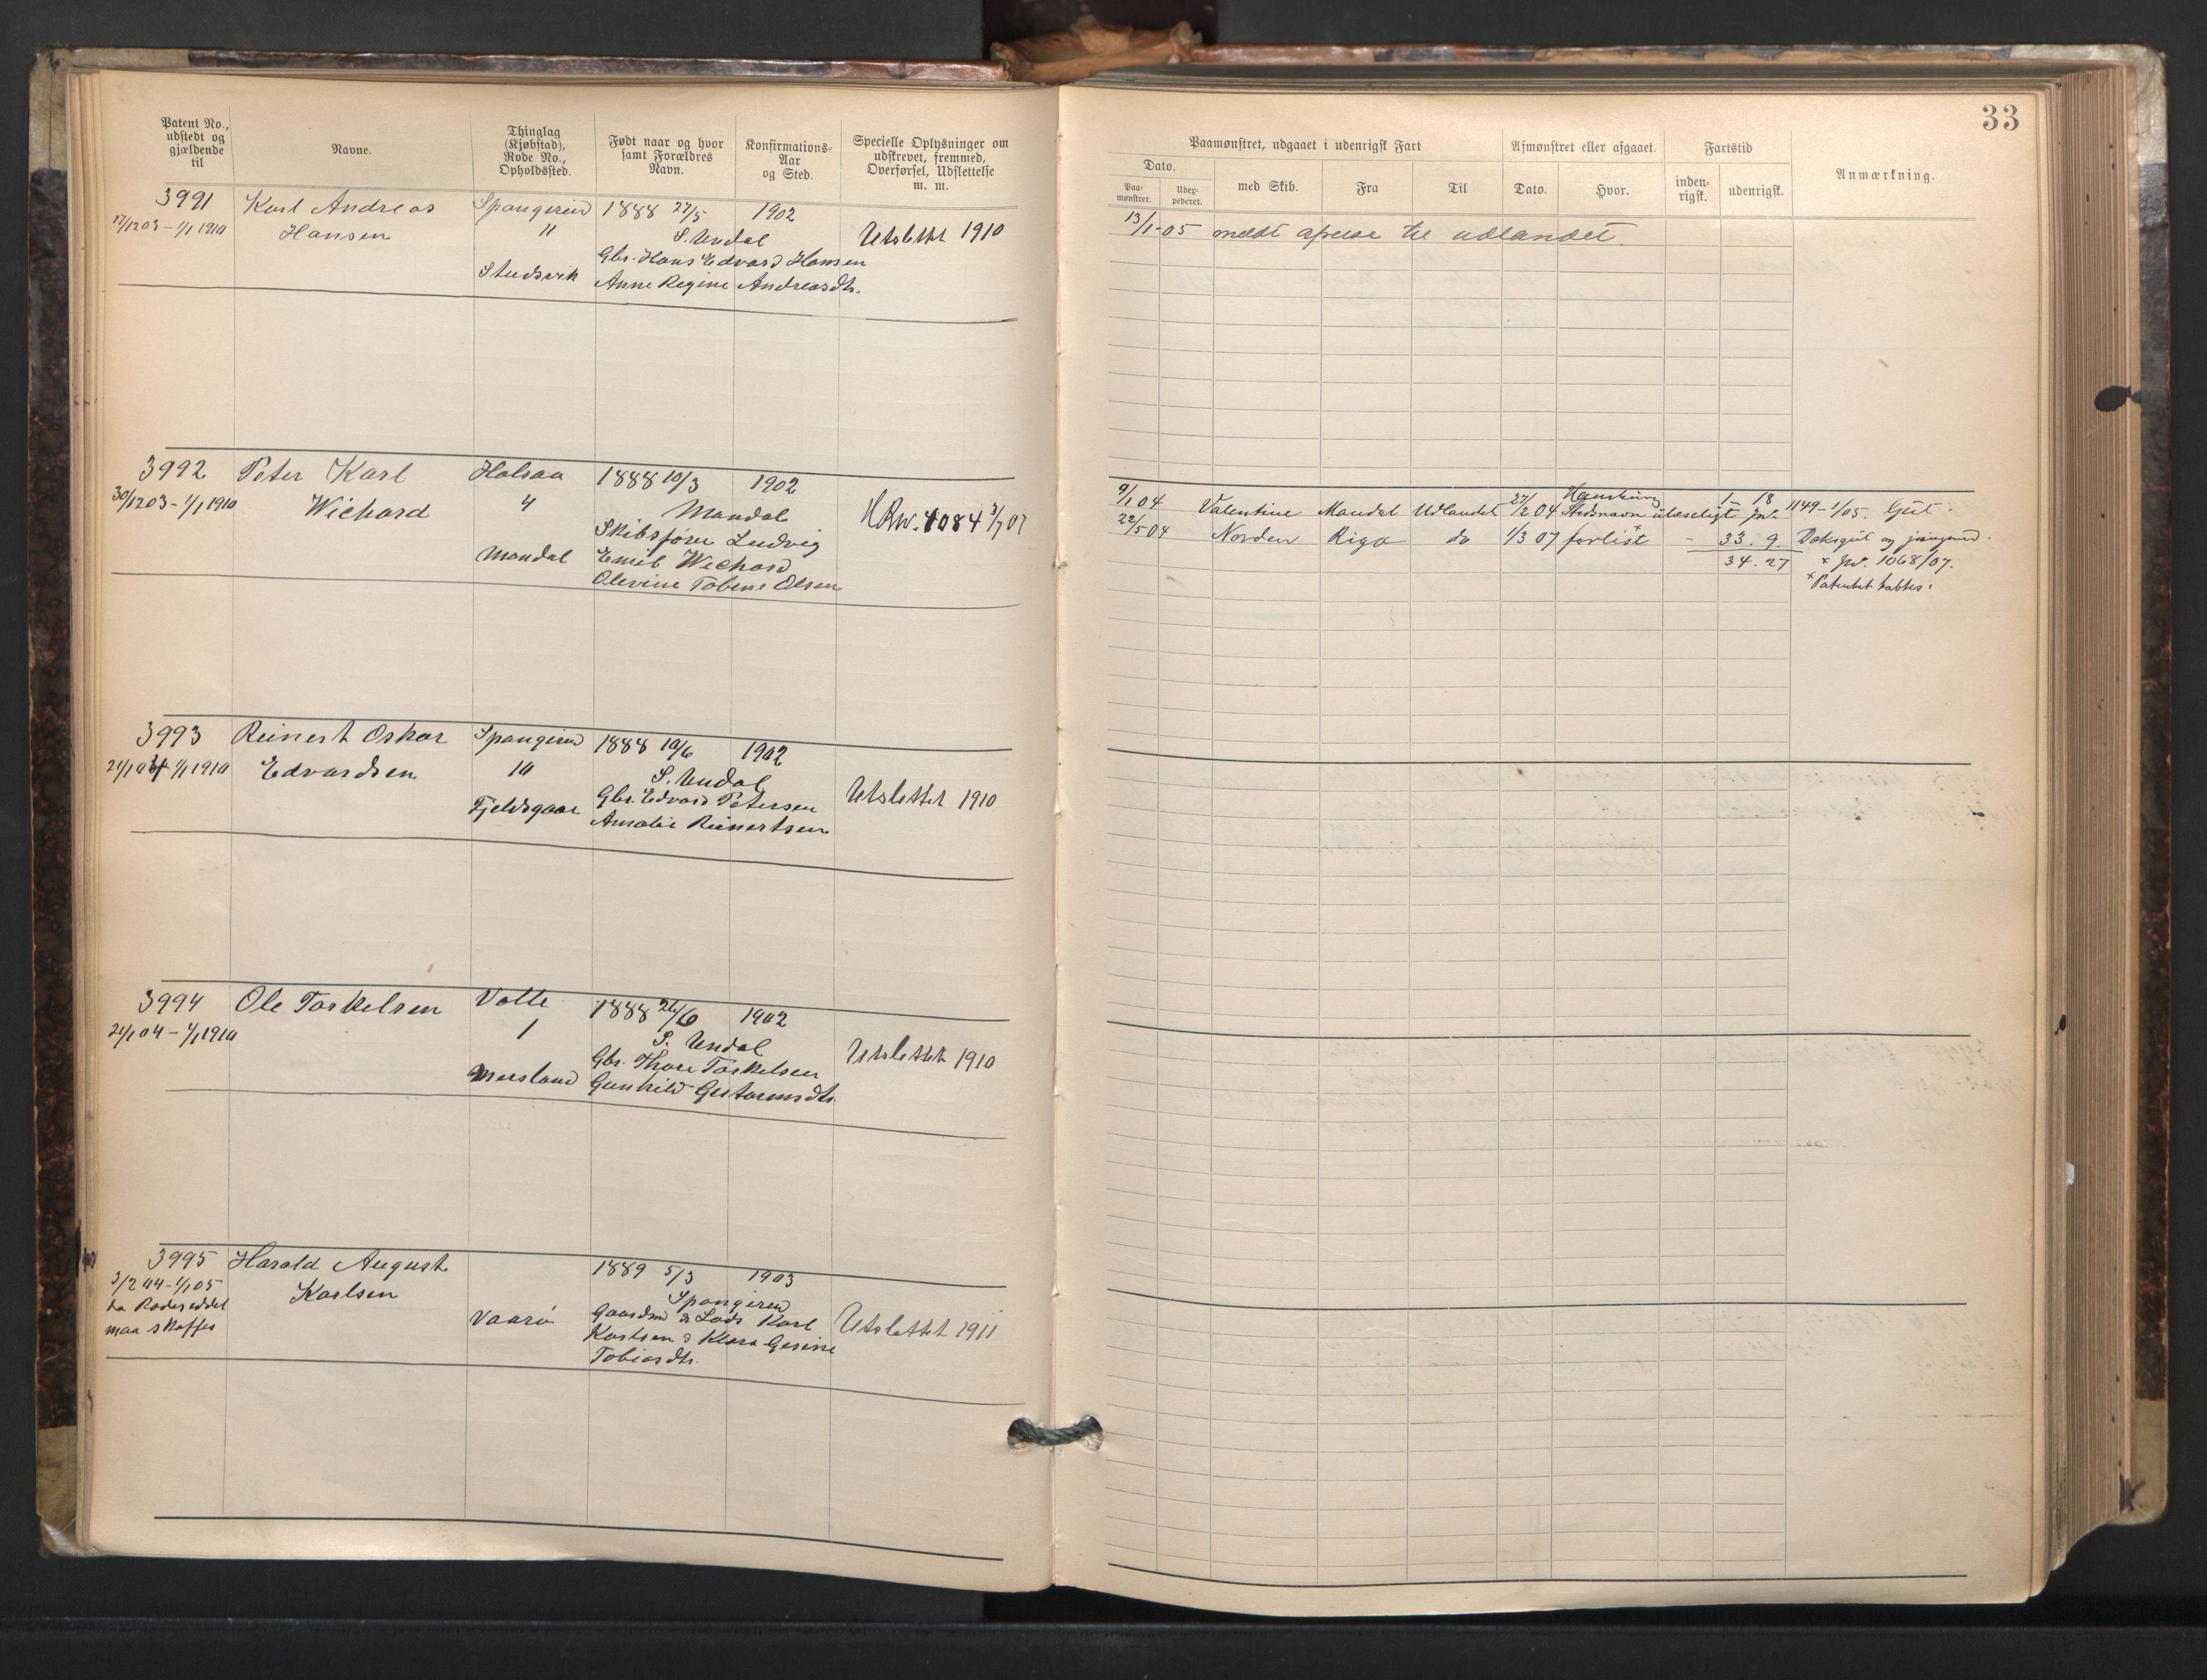 33
Patent No.,
udstedt og
gjældende
til
Navne.
Thinglag
(Kjøbstad),
Rode No.,
Opholdssted.
Født naar og hvor
samt Forældres
Navn.
Konfirmations-
Aar
og Sted.
Specielle Oplysninger om
udskrevet, fremmed,
Overførsel, Udslettelse
m. m.
Paamønstret, udgaaet i udenrigsk Fart
Afmønstret eller afgaaet.
Fartstid
Anmærkning.
Dato.
Paa-
mønstret.
Udex-
pederet.
med Skib.
Fra
Til
Dato.
Hvor.
inden-
rigsk.
udenrigsk.
3991 Karl Andreas Spangereid 1888 27/5 1902
17/12 03 - 1/1 1910 Hansen 11 S. Undal Utslettet 1910
Gbr. Hans Edvard Hansen
Studsvik Anne Regine Andreasdtr.
13/1-05 meldt afreise til udlandet.
3992 Peter Karl Halsaa 1888 10/3 1902
30/12 03 - 1/1 1910 Wichard 4 Mandal 4084 3/7 07
Skibsfører Ludvig
Mandal Emil Wichard
Olevine Tobine Olsen
9/1 04 Valentine Mandal Udlandet 27/2 04 Hamburg Stedsnavn ulæseligt 1 - 18 Jnr. 1149 - 1/05. Gut.
22/5 04 Norden Riga do 1/3 07 forlist - 33. 9. Dæksgut og jungmd.
34. 27 × Jnr. 1068/07.
× Patentet tabtes.
3993 Reinert Oskar Spangereid 1888 10/6 1902
1/1 1910 Edvardsen 10 S. Undal Utslettet 1910
Gbr. Edvard Petersen
Fjeldsgaar Amalie Reinertsen
3994 Ole Torkelsen Valle 1888 26/6 1902
21/1 04 - 1/1 1910 1 S. Undal Utslettet 1910
Gbr. Thore Torkelsen
Gunhild
3995 Harald August 1889 5/3 1903
3/2 04 - 1/1 05 Karlsen Spangereid Utslettet 1911
Rodeseddel Vaarø Gaardmd & Lods Karl
maa skaffes Karlsen & Klara Gesine
Tobiasdtr.